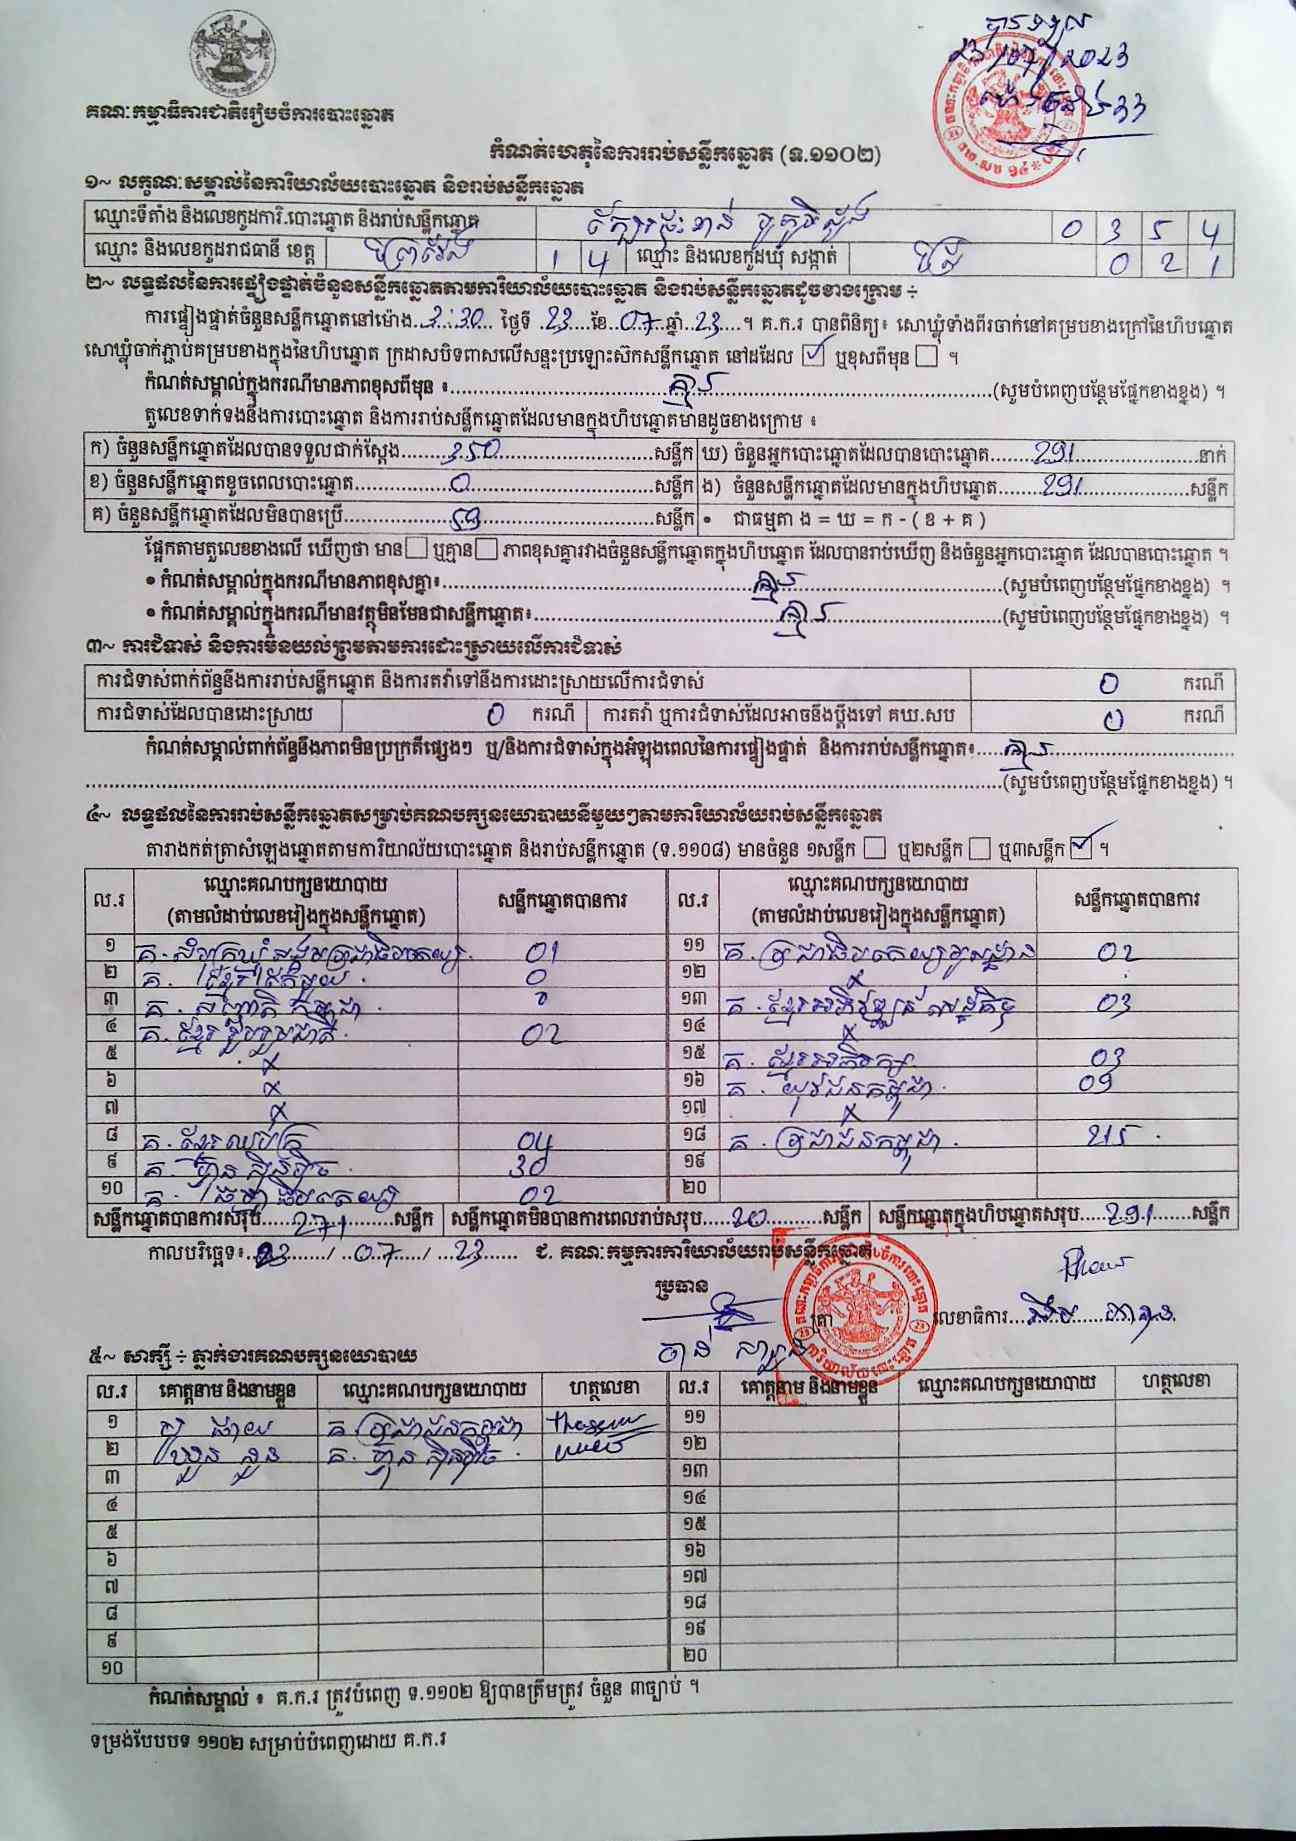 គណៈកម្មាធិការជាតិរៀបចំការបោះឆ្នោត
បានទទួល
23/07/2023
កំណត់ហេតុនៃការរាប់សន្លឹកឆ្នោត (ទ.១១០២)
១~ លក្ខណៈសម្គាល់នៃការិយាល័យបោះឆ្នោត និងរាប់សន្លឹកឆ្នោត
ឈ្មោះទីតាំង និងលេខកូដការិ.បោះឆ្នោត និងរាប់សន្លឹកឆ្នោត 0 3 5 4
ឈ្មោះ និងលេខកូដរាជធានី ខេត្ត ព្រៃវែង 1 4 ឈ្មោះ និងលេខកូដឃុំ សង្កាត់ 0 2 1
២~ លទ្ធផលនៃការផ្ទៀងផ្ទាត់ចំនួនសន្លឹកឆ្នោតតាមការិយាល័យបោះឆ្នោត និងរាប់សន្លឹកឆ្នោតដូចខាងក្រោម ÷
ការផ្ទៀងផ្ទាត់ចំនួនសន្លឹកឆ្នោតនៅម៉ោង 3:30 ថ្ងៃទី 23 ខែ 07 ឆ្នាំ 23 ។ គ.ក.រ បានពិនិត្យ៖ សោឃ្លុំទាំងពីរចាក់នៅគម្របខាងក្រៅនៃហិបឆ្នោត
សោឃ្លុំចាក់ភ្ជាប់គម្របខាងក្នុងនៃហិបឆ្នោត ក្រដាសបិទពាសលើសន្ទះប្រឡោះស៊កសន្លឹកឆ្នោត នៅដដែល ☑ ឬខុសពីមុន ☐ ។
កំណត់សម្គាល់ក្នុងករណីមានភាពខុសពីមុន ៖ គ្មាន (សូមបំពេញបន្ថែមផ្នែកខាងខ្នង) ។
តួលេខទាក់ទងនឹងការបោះឆ្នោត និងការរាប់សន្លឹកឆ្នោតដែលមានក្នុងហិបឆ្នោតមានដូចខាងក្រោម ៖
ក) ចំនួនសន្លឹកឆ្នោតដែលបានទទួលជាក់ស្តែង 350 សន្លឹក ឃ) ចំនួនអ្នកបោះឆ្នោតដែលបានបោះឆ្នោត 291 នាក់
ខ) ចំនួនសន្លឹកឆ្នោតខូចពេលបោះឆ្នោត 0 សន្លឹក ង) ចំនួនសន្លឹកឆ្នោតដែលមានក្នុងហិបឆ្នោត 291 សន្លឹក
គ) ចំនួនសន្លឹកឆ្នោតដែលមិនបានប្រើ 59 សន្លឹក • ជាធម្មតា ង = ឃ = ក - ( ខ + គ )
ផ្អែកតាមតួលេខខាងលើ ឃើញថា មាន ☐ ឬគ្មាន ☐ ភាពខុសគ្នារវាងចំនួនសន្លឹកឆ្នោតក្នុងហិបឆ្នោត ដែលបានរាប់ឃើញ និងចំនួនអ្នកបោះឆ្នោត ដែលបានបោះឆ្នោត ។
• កំណត់សម្គាល់ក្នុងករណីមានភាពខុសគ្នា៖ គ្មាន (សូមបំពេញបន្ថែមផ្នែកខាងខ្នង) ។
• កំណត់សម្គាល់ក្នុងករណីមានវត្ថុមិនមែនជាសន្លឹកឆ្នោត៖ គ្មាន (សូមបំពេញបន្ថែមផ្នែកខាងខ្នង) ។
៣~ ការជំទាស់ និងការមិនយល់ព្រមតាមការដោះស្រាយលើការជំទាស់
ការជំទាស់ពាក់ព័ន្ធនឹងការរាប់សន្លឹកឆ្នោត និងការតវ៉ាទៅនឹងការដោះស្រាយលើការជំទាស់ 0 ករណី
ការជំទាស់ដែលបានដោះស្រាយ 0 ករណី ការតវ៉ា ឬការជំទាស់ដែលអាចនឹងប្តឹងទៅ គឃ.សប 0 ករណី
កំណត់សម្គាល់ពាក់ព័ន្ធនឹងភាពមិនប្រក្រតីផ្សេងៗ ឬ/និងការជំទាស់ក្នុងអំឡុងពេលនៃការផ្ទៀងផ្ទាត់ និងការរាប់សន្លឹកឆ្នោត៖ គ្មាន
(សូមបំពេញបន្ថែមផ្នែកខាងខ្នង) ។
៤~ លទ្ធផលនៃការរាប់សន្លឹកឆ្នោតសម្រាប់គណបក្សនយោបាយនីមួយៗតាមការិយាល័យរាប់សន្លឹកឆ្នោត
តារាងកត់ត្រាសំឡេងឆ្នោតតាមការិយាល័យបោះឆ្នោត និងរាប់សន្លឹកឆ្នោត (ទ.១១០៨) មានចំនួន ១សន្លឹក ☐ ឬ២សន្លឹក ☐ ឬ៣សន្លឹក ☑ ។
ល.រ ឈ្មោះគណបក្សនយោបាយ (តាមលំដាប់លេខរៀងក្នុងសន្លឹកឆ្នោត) សន្លឹកឆ្នោតបានការ ល.រ ឈ្មោះគណបក្សនយោបាយ (តាមលំដាប់លេខរៀងក្នុងសន្លឹកឆ្នោត) សន្លឹកឆ្នោតបានការ
១ គ. សំបុក្រឃ្មុំសង្គមប្រជាធិបតេយ្យ 01 ១១ គ. ប្រជាធិបតេយ្យមូលដ្ឋាន 02
២ គ. ខ្មែរតែមួយ 0 ១២ x
៣ គ. សញ្ជាតិកម្ពុជា 0 ១៣ គ. ខ្មែរអភិវឌ្ឍន៍សេដ្ឋកិច្ច 03
៤ គ. ខ្មែររួបរួមជាតិ 02 ១៤ x
៥ x ១៥ គ. ខ្មែរអភិរក្ស 03
៦ x ១៦ គ. យុវជនកម្ពុជា 09
៧ x ១៧ x
៨ គ. ខ្មែរឈប់ក្រ 04 ១៨ គ. ប្រជាជនកម្ពុជា 215
៩ គ. ហ៊្វុនស៊ិនប៉ិច 30 ១៩
១០ គ. ធម្មាធិបតេយ្យ 02 ២០
សន្លឹកឆ្នោតបានការសរុប 271 សន្លឹក សន្លឹកឆ្នោតមិនបានការពេលរាប់សរុប 20 សន្លឹក សន្លឹកឆ្នោតក្នុងហិបឆ្នោតសរុប 291 សន្លឹក
កាលបរិច្ឆេទ៖ 23 / 07 / 23 ជ. គណៈកម្មការការិយាល័យរាប់សន្លឹកឆ្នោត
ប្រធាន
ត្រា លេខាធិការ
៥~ សាក្សី ÷ ភ្នាក់ងារគណបក្សនយោបាយ
ល.រ គោត្តនាម និងនាមខ្លួន ឈ្មោះគណបក្សនយោបាយ ហត្ថលេខា ល.រ គោត្តនាម និងនាមខ្លួន ឈ្មោះគណបក្សនយោបាយ ហត្ថលេខា
១ គ. ប្រជាជនកម្ពុជា ១១
២ គ. ហ៊្វុនស៊ិនប៉ិច ១២
៣ ១៣
៤ ១៤
៥ ១៥
៦ ១៦
៧ ១៧
៨ ១៨
៩ ១៩
១០ ២០
កំណត់សម្គាល់ ៖ គ.ក.រ ត្រូវបំពេញ ទ.១១០២ ឱ្យបានត្រឹមត្រូវ ចំនួន ៣ច្បាប់ ។
ទម្រង់បែបបទ ១១០២ សម្រាប់បំពេញដោយ គ.ក.រ